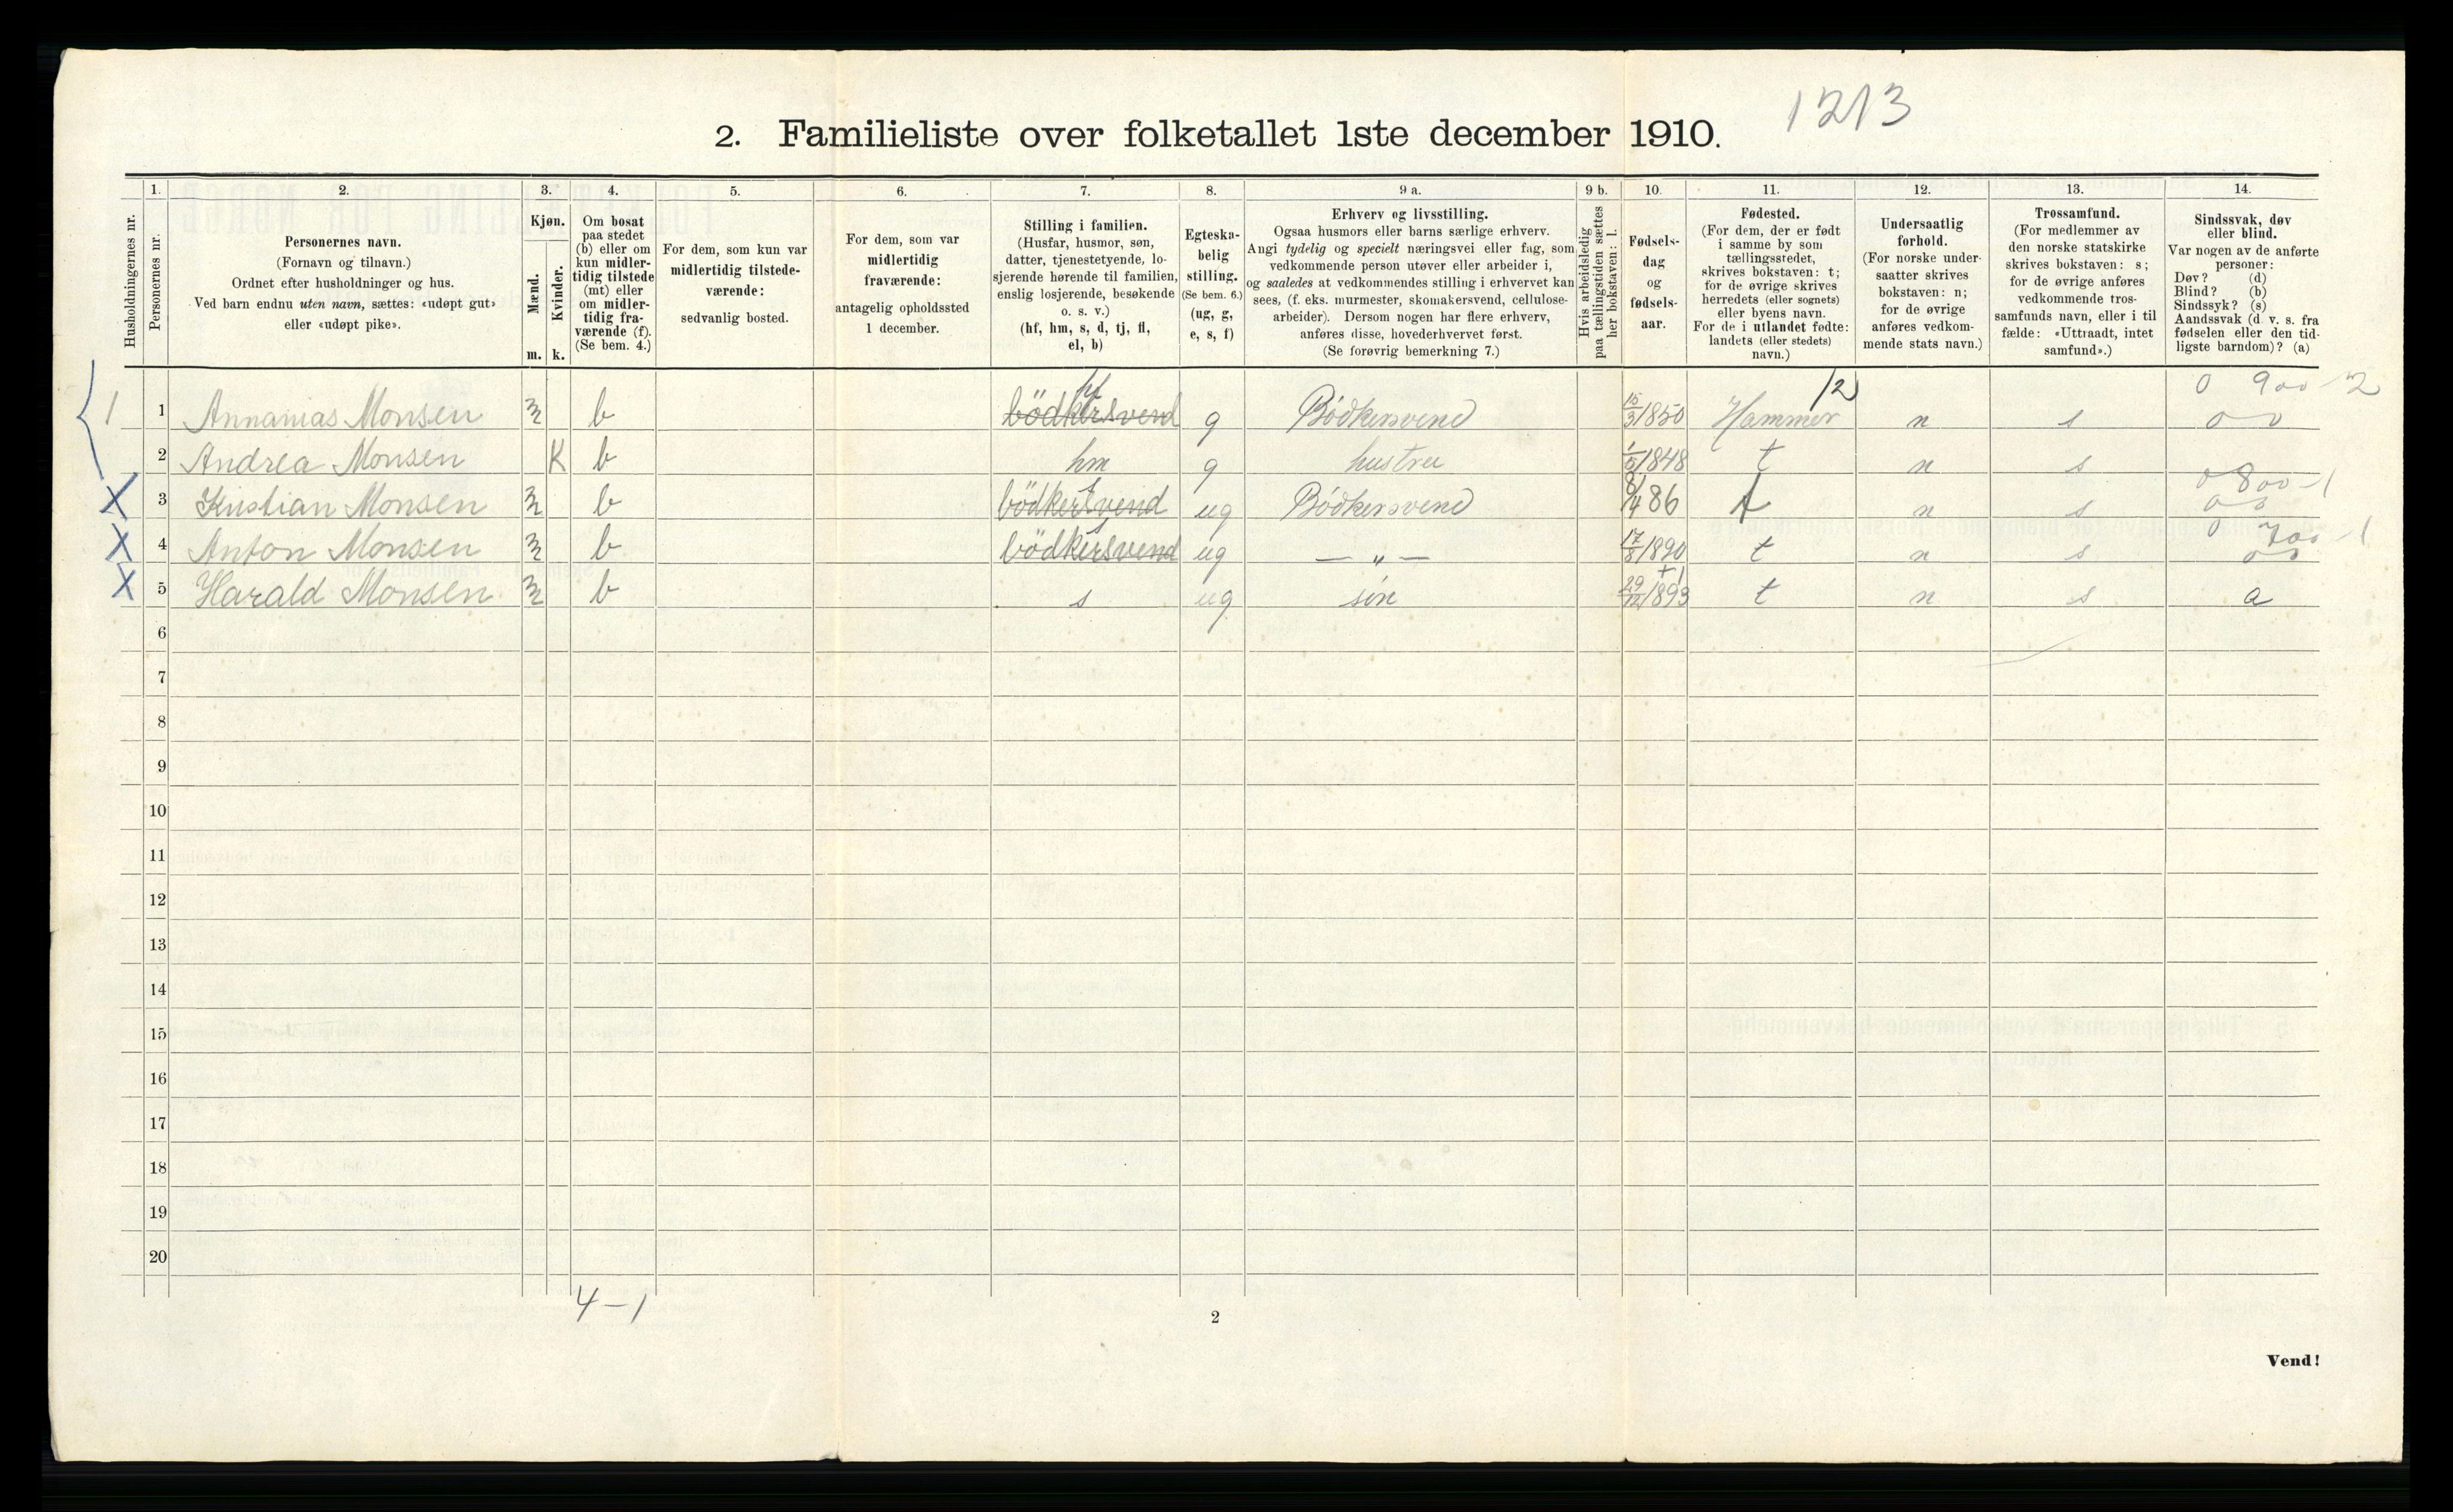 1213
2. Familieliste over folketallet 1ste december 1910.
Husholdningernes nr.
1.
Personernes nr.
2.
Personernes navn.
(Fornavn og tilnavn.)
Ordnet efter husholdninger og hus.
Ved barn endnu uten navn, sættes: «udøpt gut»
eller «udøpt pike».
3.
Kjøn.
Mænd.
m.
Kvinder.
k.
4.
Om bosat
paa stedet
(b) eller om
kun midler-
tidig tilstede
(mt) eller
om midler-
tidig fra-
værende (f).
(Se bem. 4.)
5.
For dem, som kun var
midlertidig tilstede-
værende:
sedvanlig bosted.
6.
For dem, som var
midlertidig
fraværende:
antagelig opholdssted
1 december.
7.
Stilling i familien.
(Husfar, husmor, søn,
datter, tjenestetyende, lo-
sjerende hørende til familien,
enslig losjerende, besøkende
o. s. v.)
(hf, hm, s, d, tj, fl,
el, b)
8.
Egteska-
belig
stilling.
(Se bem. 6.)
(ug, g,
e, s, f)
9 a.
Erhverv og livsstilling.
Ogsaa husmors eller barns særlige erhverv.
Angi tydelig og specielt næringsvei eller fag, som
vedkommende person utøver eller arbeider i,
og saaledes at vedkommendes stilling i erhvervet kan
sees, (f. eks. murmester, skomakersvend, cellulose-
arbeider). Dersom nogen har flere erhverv,
anføres disse, hovederhvervet først.
(Se forøvrig bemerkning 7.)
9 b.
Hvis arbeidsledig
paa tællingstiden sættes
her bokstaven: l.
10.
Fødsels-
dag
og
fødsels-
aar.
11.
Fødested.
(For dem, der er født
i samme by som
tællingsstedet,
skrives bokstaven: t;
for de øvrige skrives
herredets (eller sognets)
eller byens navn.
For de i utlandet fødte:
landets (eller stedets)
navn.)
12.
Undersaatlig
forhold.
(For norske under-
saatter skrives
bokstaven: n;
for de øvrige
anføres vedkom-
mende stats navn.)
13.
Trossamfund.
(For medlemmer av
den norske statskirke
skrives bokstaven: s;
for de øvrige anføres
vedkommende tros-
samfunds navn, eller i til
fælde: «Uttraadt, intet
samfund».)
14.
Sindssvak, døv
eller blind.
Var nogen av de anførte
personer:
Døv? (d)
Blind? (b)
Sindssyk? (s)
Aandssvak (d. v. s. fra
fødselen eller den tid-
ligste barndom)? (a)
hf 12 0 900-2
1 1 Annanias Monsen m b bödkersvend g Bödkersvend 15/3 1850 Hammer n s 0 0
2 Andrea Monsen K b hm g hustru 1/5 1848 t n s
s 0 800-1
X 3 Kristian Monsen m b bödkersvend ug Bödkersvend 8/4 86 t n s 0 0
s 0 700-1
X 4 Anton Monsen m b bödkersvend ug — „ — 17/8 1890 t n s 0 0
X 5 Harald Monsen m b s ug sön 29/12 1893 t n s a
6
7
8
9
10
11
12
13
14
15
16
17
18
19
20
4-1
2
Vend!